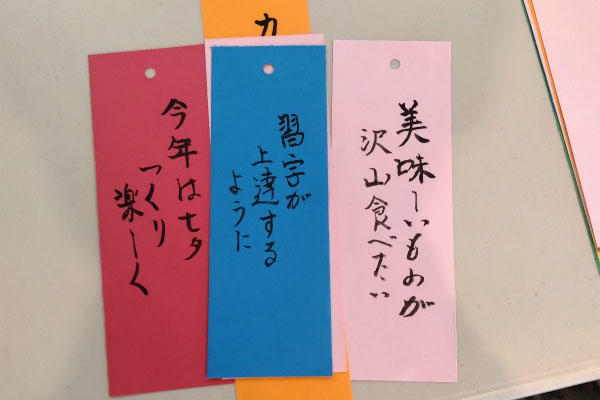 美味しいものが
沢山食べたい
習字が
上達する
ように
今年は七夕
つくり
楽しく
カ